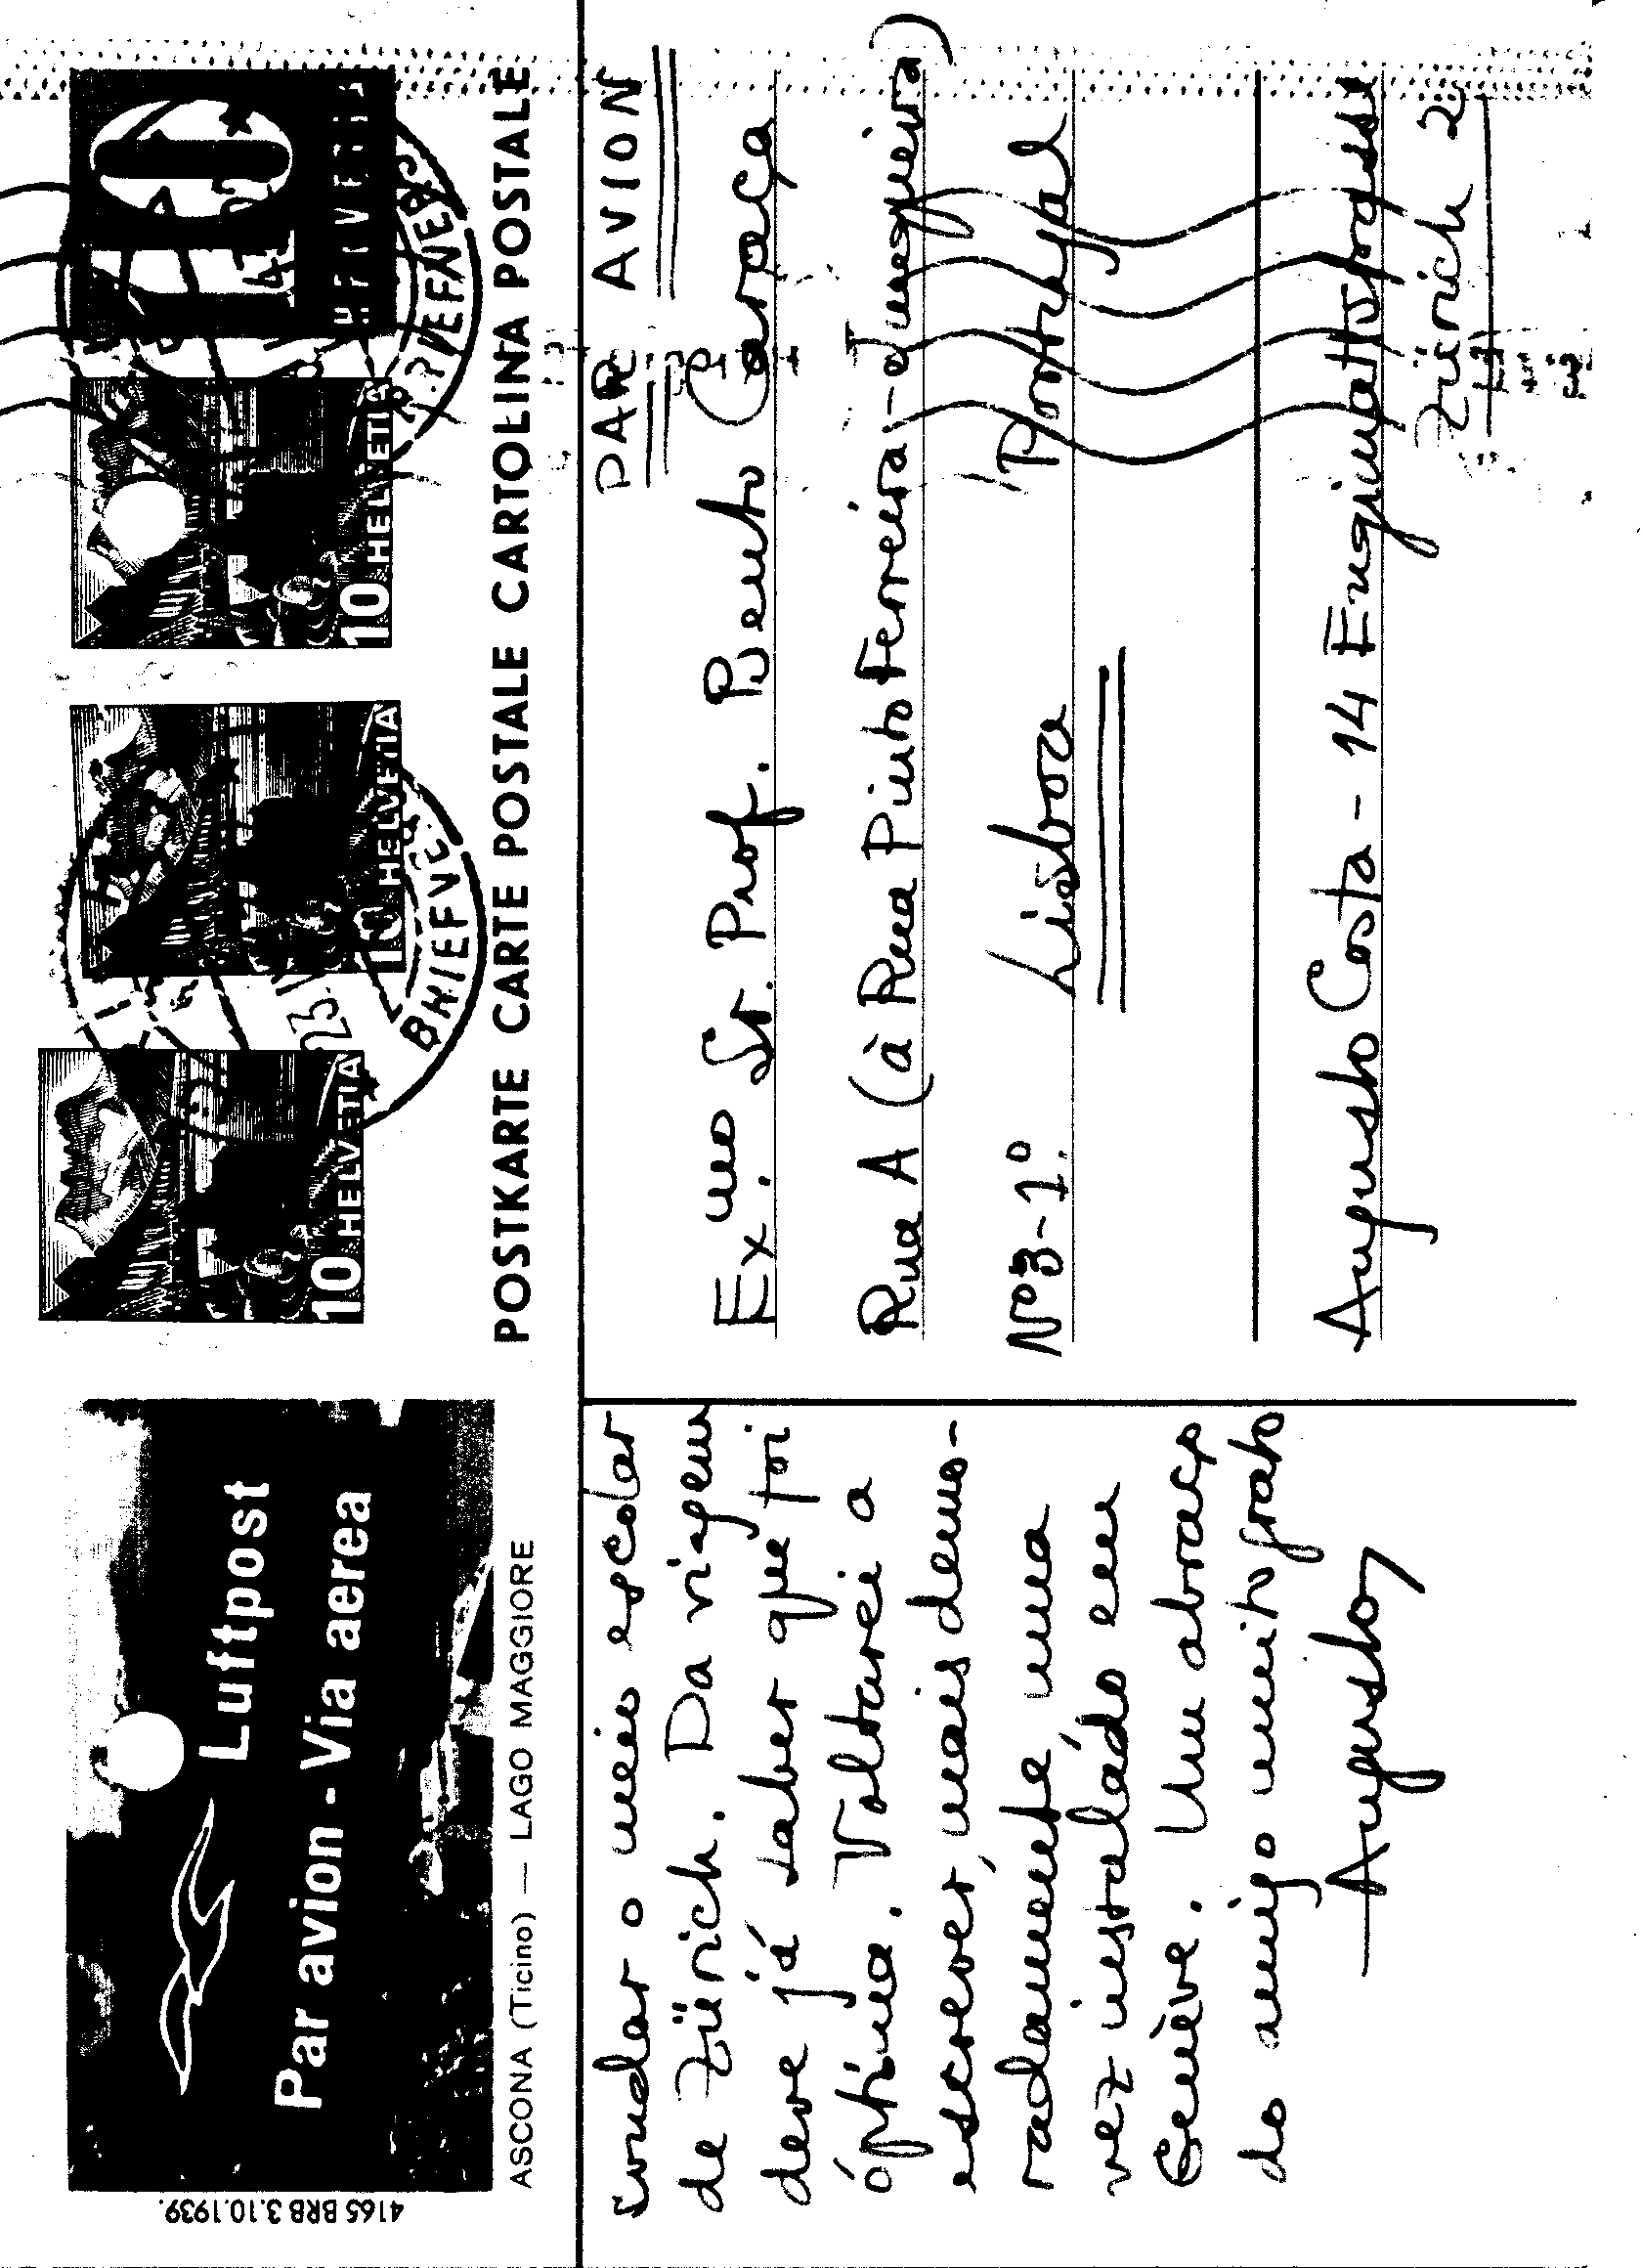 Luftpost
Par avion - Via aerea
4165 BRB 3.10.1939.
ASCONA (Ticino) — LAGO MAGGIORE
mudar o meio escolar
de Zürich. Da viagem
deve já saber que foi
óptima. Voltarei a
escrever, mais demo-
radamente uma
vez instalado em
Genève. Um abraço
do amigo muito grato
Augusto
10 HELVETIA
10 HELVETIA
10 HELVETIA
10
HELVETIA
POSTKARTE CARTE POSTALE CARTOLINA POSTALE
PAR AVION
Ex.mo Sr. Prof. Bento Caraça
Rua A (à Rua Pinto Ferreira - Junqueira)
Nº 3-1º. Lisboa Portugal
Augusto Costa - 14 Engimattstrasse
Zürich 2